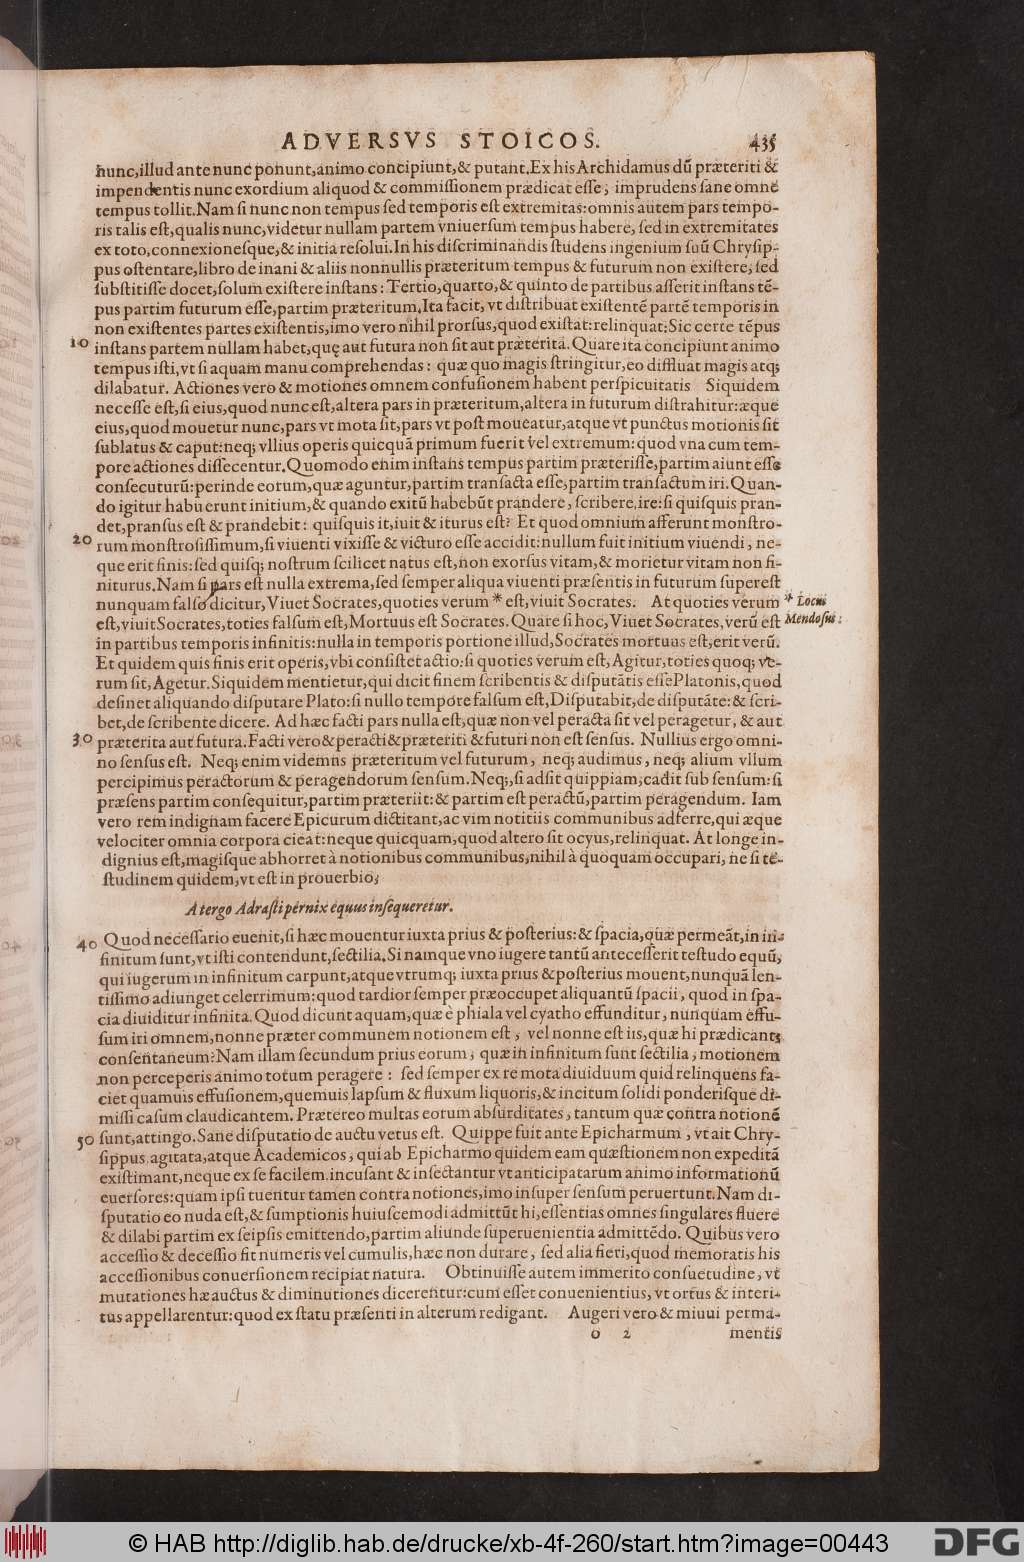 ADVERSVS STOICOS. 435
nunc,illud ante nunc ponunt,animo concipiunt,& putant.Ex his Archidamus dū præteriti &
impendentis nunc exordium aliquod & commissionem prædicat esse, imprudens sane omne
tempus tollit.Nam si nunc non tempus sed temporis est extremitas:omnis autem pars tempo-
ris talis est,qualis nunc,videtur nullam partem vniuersum tempus habere, sed in extremitates
ex toto,connexionesque,& initia resolui.In his discriminandis studens ingenium suū Chrysip-
pus ostentare,libro de inani & aliis nonnullis præteritum tempus & futurum non existere, sed
substitisse docet,solum existere instans: Tertio,quarto,& quinto de partibus asserit instans tē-
pus partim futurum esse,partim præteritum.Ita facit, vt distribuat existentē partē temporis in
non existentes partes existentis,imo vero nihil prorsus,quod existat:relinquat:Sic certe tēpus
10 instans partem nullam habet,quę aut futura non sit aut præterita.Quare ita concipiunt animo
tempus isti,vt si aquam manu comprehendas: quæ quo magis stringitur,eo diffluat magis atq;
dilabatur. Actiones vero & motiones omnem confusionem habent perspicuitatis Siquidem
necesse est,si eius,quod nunc est,altera pars in præteritum,altera in futurum distrahitur:æque
eius,quod mouetur nunc,pars vt mota sit,pars vt post moueatur,atque vt punctus motionis sit
sublatus & caput:neq; vllius operis quicquā primum fuerit vel extremum:quod vna cum tem-
pore actiones dissecentur.Quomodo enim instans tempus partim præterisse,partim aiunt esse
consecuturū:perinde eorum,quæ aguntur,partim transacta esse,partim transactum iri.Quan-
do igitur habuerunt initium,& quando exitū habebūt prandere, scribere,ire:si quisquis pran-
det,pransus est & prandebit: quisquis it,iuit & iturus est? Et quod omnium afferunt monstro-
20 rum monstrosissimum,si viuenti vixisse & victuro esse accidit:nullum fuit initium viuendi, ne-
que erit finis:sed quisq; nostrum scilicet natus est,non exorsus vitam,& morietur vitam non fi-
niturus.Nam si pars est nulla extrema,sed semper aliqua viuenti præsentis in futurum superest
nunquam falso dicitur, Viuet Socrates,quoties verum * est,viuit Socrates. At quoties verum * Locus
est,viuit Socrates,toties falsum est,Mortuus est Socrates.Quare si hoc,Viuet Socrates,verū est Mendosus:
in partibus temporis infinitis:nulla in temporis portione illud,Socrates mortuus est,erit verū.
Et quidem quis finis erit operis,vbi consistet actio:si quoties verum est,Agitur,toties quoq; ve-
rum sit,Agetur.Siquidem mentietur,qui dicit finem scribentis & disputātis esse Platonis,quod
desinet aliquando disputare Plato:si nullo tempore falsum est,Disputabit,de disputāte:& scri-
bet,de scribente dicere. Ad hæc facti pars nulla est,quæ non vel peracta sit vel peragetur, & aut
30 præterita aut futura.Facti vero & peracti & præteriti & futuri non est sensus. Nullius ergo omni-
no sensus est. Neq; enim videmus præteritum vel futurum, neq; audimus, neq; alium vllum
percipimus peractorum & peragendorum sensum.Neq;,si adsit quippiam,cadit sub sensum:si
præsens partim consequitur,partim præteriit:& partim est peractū,partim peragendum. Iam
vero rem indignam facere Epicurum dictitant,ac vim notitiis communibus adferre,qui æque
velociter omnia corpora cieat:neque quicquam,quod altero sit ocyus,relinquat. At longe in-
dignius est,magisque abhorret à notionibus communibus,nihil à quoquam occupari, ne si te-
studinem quidem,vt est in prouerbio,
A tergo Adrasti pernix equus insequeretur.
40 Quod necessario euenit,si hæc mouentur iuxta prius & posterius:& spacia,quæ permeāt,in in-
finitum sunt,vt isti contendunt,sectilia.Si namque vno iugere tantū antecesserit testudo equū,
qui iugerum in infinitum carpunt,atque vtrumq; iuxta prius & posterius mouent,nunquā len-
tissimo adiunget celerrimum:quod tardior semper præoccupet aliquantū spacii, quod in spa-
cia diuiditur infinita.Quod dicunt aquam,quæ è phiala vel cyatho effunditur, nunquam effu-
sum iri omnem,nonne præter communem notionem est, vel nonne est iis,quæ hi prædicant,
consentaneum?Nam illam secundum prius eorum, quæ in infinitum sunt sectilia, motionem
non perceperis animo totum peragere: sed semper ex re mota diuiduum quid relinquens fa-
ciet quamuis effusionem,quemuis lapsum & fluxum liquoris,& incitum solidi ponderisque di-
missi casum claudicantem. Prætereo multas eorum absurditates, tantum quæ contra notionē
50 sunt,attingo.Sane disputatio de auctu vetus est. Quippe fuit ante Epicharmum, vt ait Chry-
sippus agitata,atque Academicos, qui ab Epicharmo quidem eam quæstionem non expeditā
existimant,neque ex se facilem.incusant & insectantur vt anticipatarum animo informationū
euersores:quam ipsi tuentur tamen contra notiones,imo insuper sensum peruertunt.Nam di-
sputatio eo nuda est,& sumptionis huiuscemodi admittūt hi,essentias omnes singulares fluere
& dilabi partim ex seipsis emittendo,partim aliunde superuenientia admittēdo. Quibus vero
accessio & decessio fit numeris vel cumulis,hæc non durare, sed alia fieri,quod memoratis his
accessionibus conuersionem recipiat natura. Obtinuisse autem immerito consuetudine, vt
mutationes hæ auctus & diminutiones dicerentur:cum esset conuenientius, vt ortus & interi-
tus appellarentur:quod ex statu præsenti in alterum redigant. Augeri vero & minui perma-
o 2 mentis
© HAB http://diglib.hab.de/drucke/xb-4f-260/start.htm?image=00443 DFG